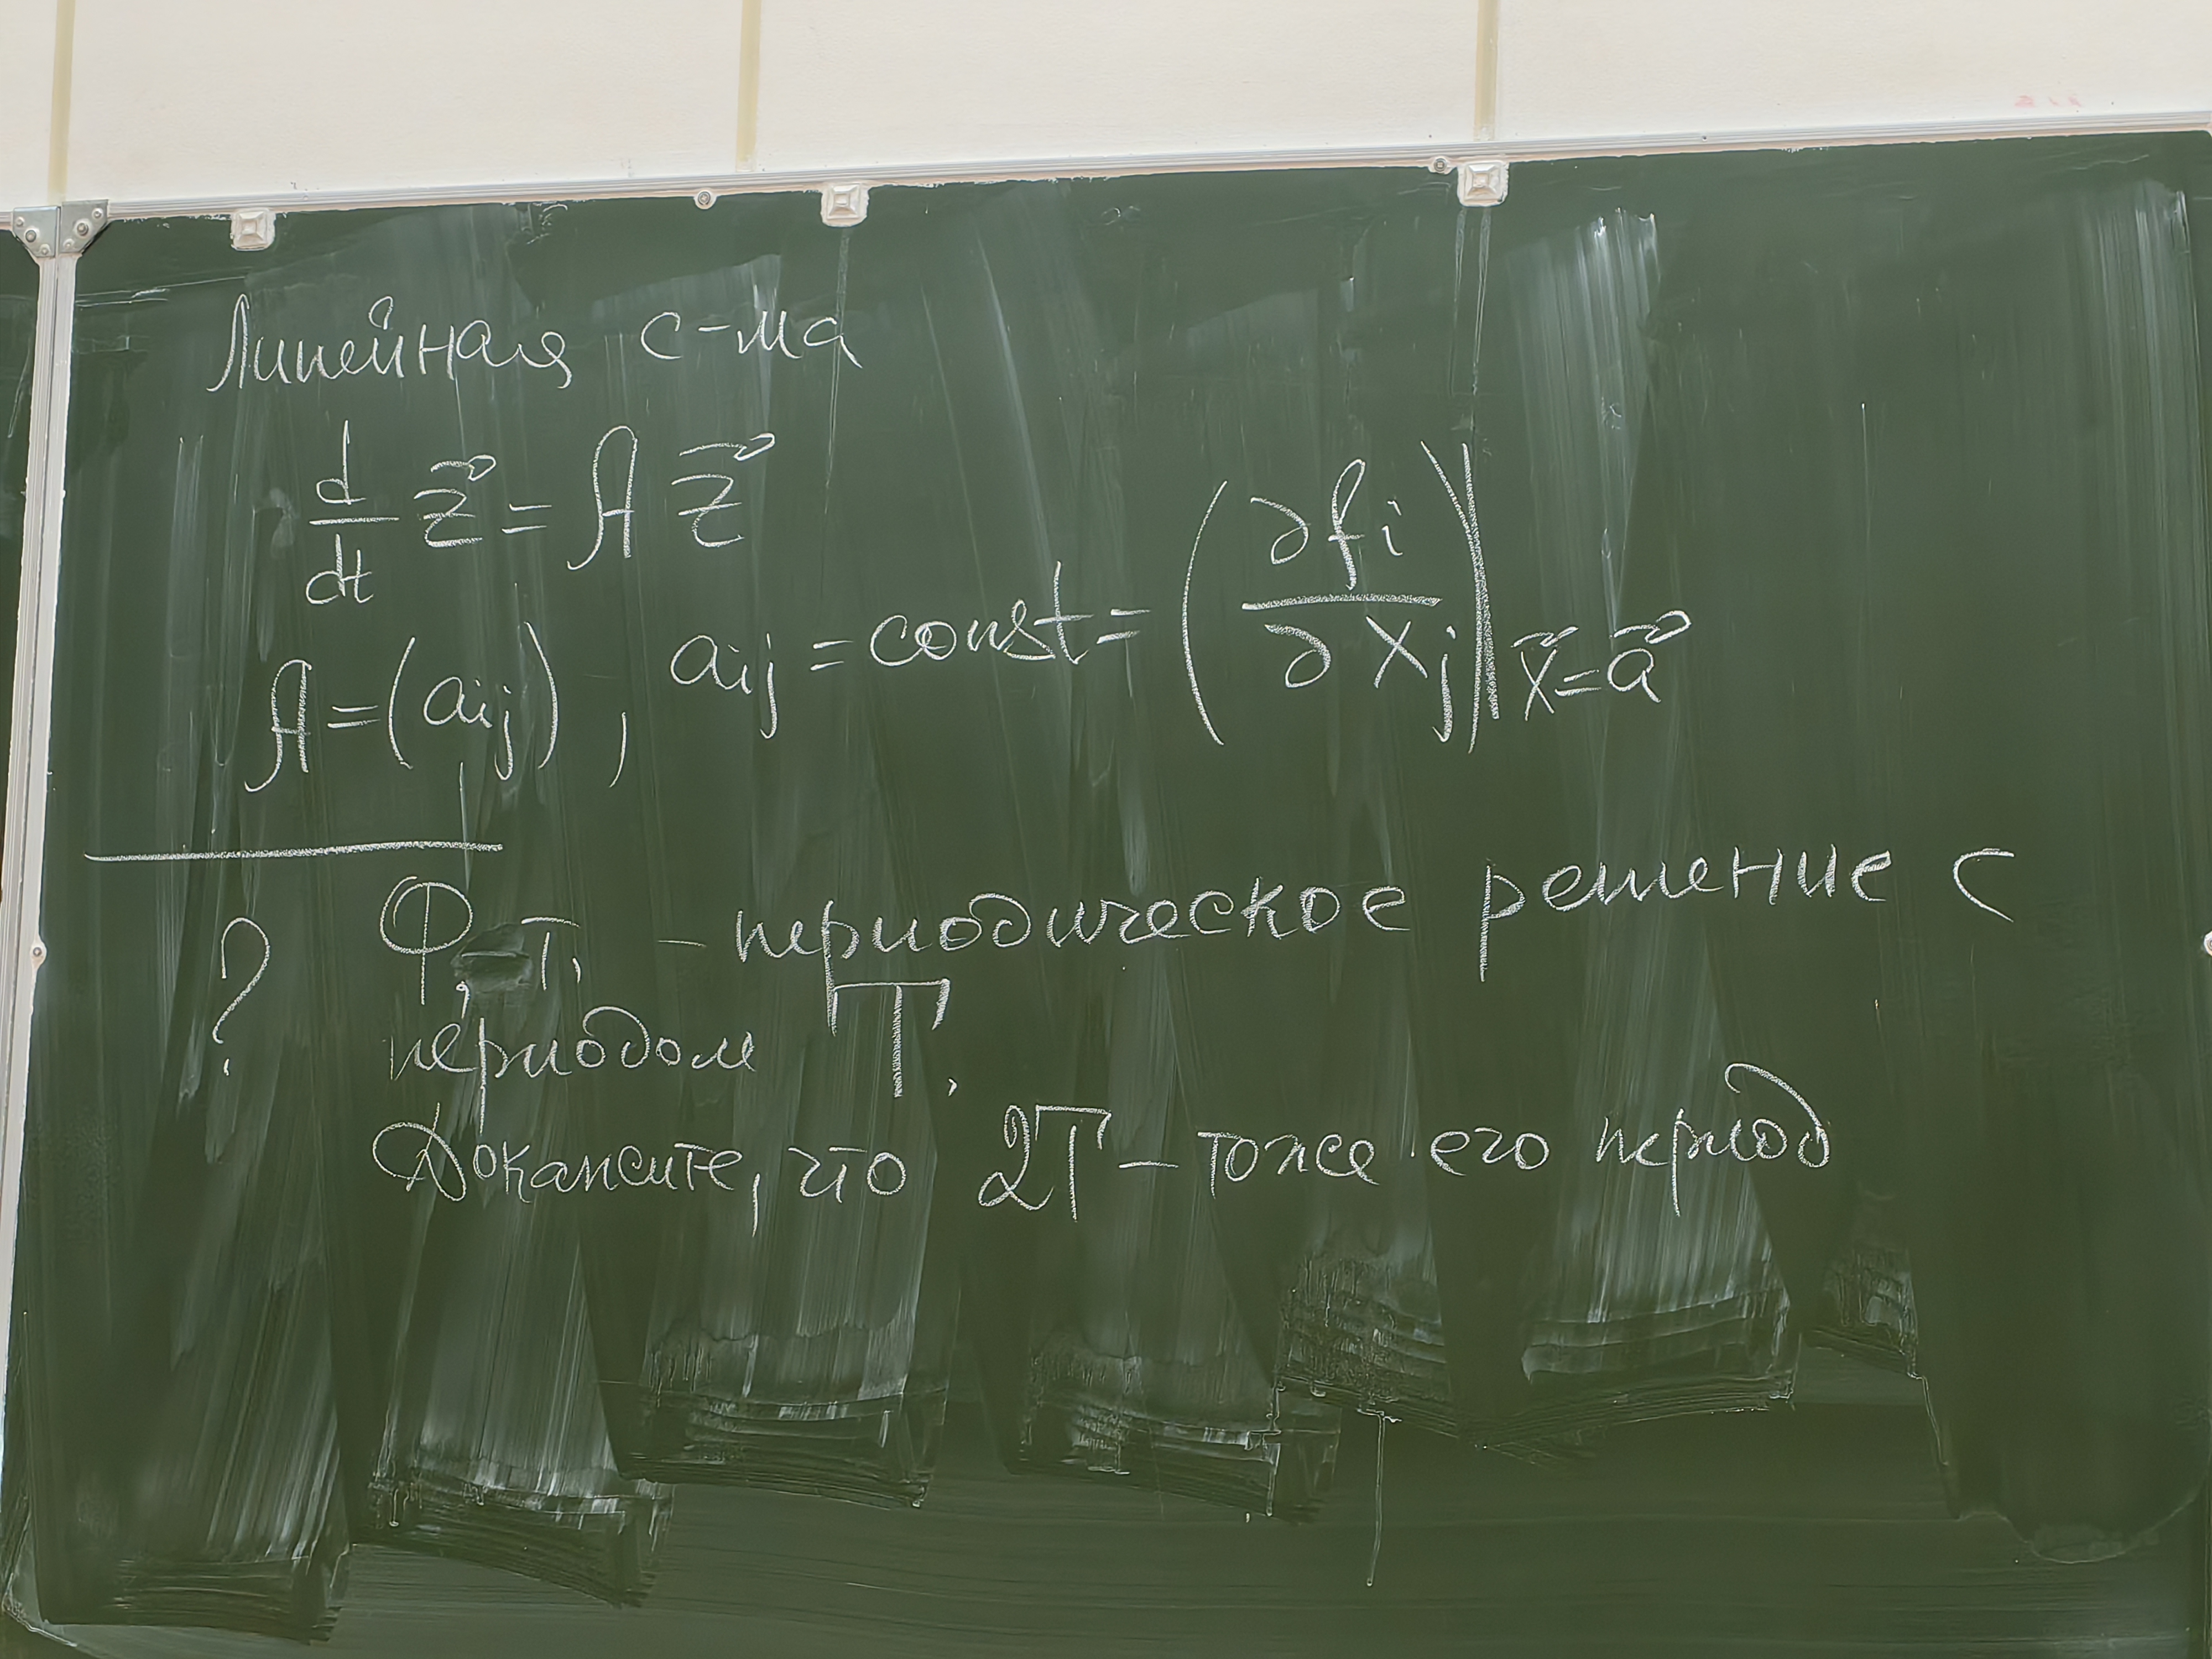 Линейная с-ма
d/dt z⃗ = A z⃗
A = (aij), aij = const = (∂fi/∂xj)|x⃗=a⃗
? Ф, т, - периодическое решение с
периодом T.
Докажите, что 2T - тоже его период